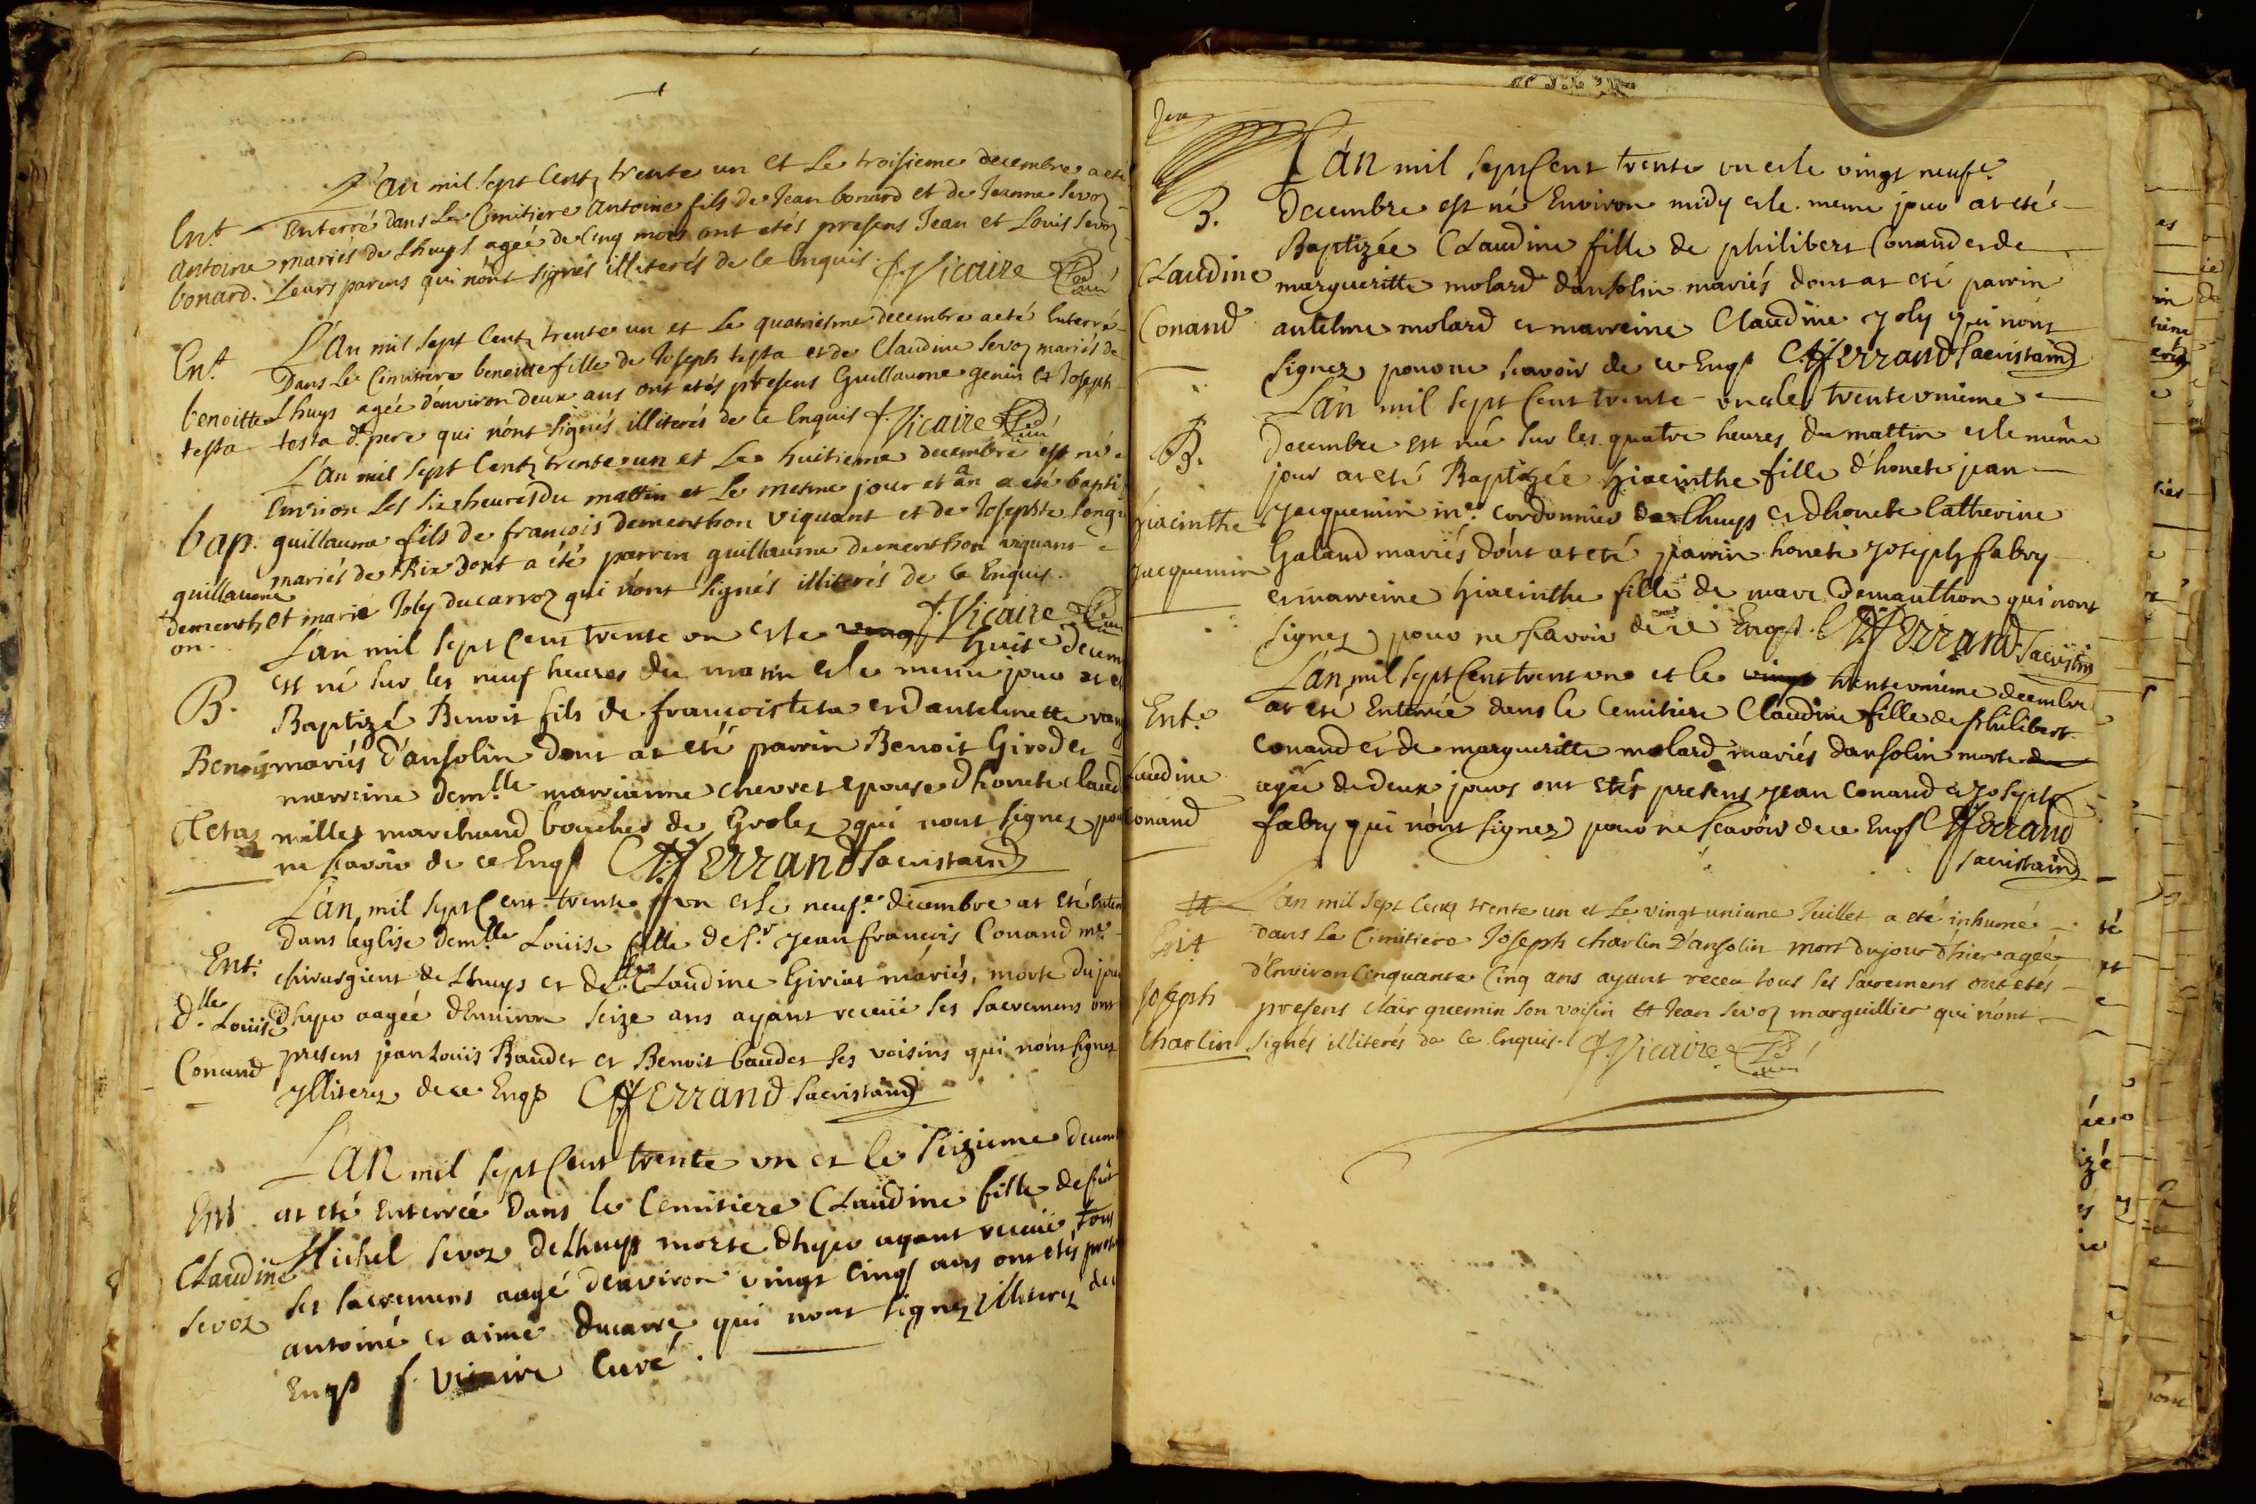 L'an mil sept Centz trente un et Le troisieme decembre a eté
Ent. Enterré dans Le Cimitiere Antoine fils de Jean bonard et de Jeanne Sevoz
Antoine mariés de Lhuys ageé de Cinq mois ont etés presens Jean et Louis Sevoz
bonard. Leurs parens qui nónt signés illiterés de Ce Enquis. f. Vicaire
L'An mil sept Centz trente un et Le quatriesme decembre a eté Enterré
Ent. Dans Le Cimitiere benoitte fille de Joseph testa et de Claudine Sevoz mariés de
benoitte Lhuys agée d'environ deux ans ont etés presens Guillaume genin Et Joseph
testa testa d. pere qui nónt signés illiterés de Ce Enquis f. Vicaire
L'An mil sept Centz trente un et Le huitieme decembre est né
Environ Les Six heures du mattin et Le mesme jour et an a eté bapti
bap. guillaume fils de francois dementhon viquant et de Josephte
guillaume mariés de Rix Dont a été parrin guillaume dementhon viquant
dementhon Et marie Joly ducarroz qui nónt signés illiterés de Ce Enquis.
f. Vicaire
L'an mil sept Cent trente un et le huit decem
est né sur les neuf heures du matin et le meme jour at et
B. Baptizé Benoit fils de francois testa et d'antelmette
Benoit mariés d'ansolin dont at eté parrin Benoit Girod et
marreine dem.lle marrianne chevret epouse d'honete claud
Testaz millet marchand boucher de Grolez qui nont signez pour
ne scavoir de ce Enqs C.H. Ferrand Sacristaind
L'an mil sept Cent trente un et le neuf.e decembre at eté Enter
dans leglise dem.lle Louise fille de S.r Jean francois Conand m.e
Ent. chirurgient de Lhuys et de d.lle Claudine Giriat mariés, morte du jour
d.lle Louise d'hyer aagée d'Environ seize ans ayant receüe ses sacremens ont
Conand presens jean Louis Baudet et Benoit baudet ses voisins qui nónt signez
ylliterez de ce Enqs C.H. Ferrand Sacristaind
L'an mil sept Cent trente un et le seizieme decem
Ent at eté Enterrée Dans le Cemitiere Claudine fille defût
Claudine Michel Sevoz de Lhuys morte d'hyer ayant receüe tous
Sevoz ses sacremens aagé d'environ vingt cinq ans ont etés prese
antoine et aimé Ducarre qui nont signez illiterez de ce
Enqs f. Vicaire Curé.
L'an mil sept Cent trente un et le vingt neuf.e
B. decembre est né Environ midy et le meme jour at eté
Baptizée Claudine fille de philibert Conand et de
Claudine margueritte molard d'ansolin mariés dont at eté parrin
Conand antelme molard et marreine Claudine Joly qui nónt
signez pour ne scavoir de ce Enqs C.H. Ferrand Sacristaind
L'an mil sept Cent trente un et le trente unieme
B. decembre est né sur les quatre heures du mattin et le même
jour at eté Baptizée hiacinthe fille d'honete jean
hiacinthe Jacquemin m.e cordonnier de Lhuys et d'honete Catherine
Jacquemin Galand mariés dónt at eté parrin honete Joseph fabry
et marreine hiacinthe fille de marc Demanthon qui nont
signez pour ne scavoir de ce Enqs C.H. Ferrand Sacristin
L'an mil sept Cent trent un et le vingt trente unieme decembre
Ent.e at eté Enterrée dans le Cemitiere Claudine fille de philibert
Claudine Conand et de margueritte molard mariés d'ansolin morte
agée de deux jours ont etés presens Jean Conand et Joseph
Conand fabry qui nónt signez pour ne scavoir de ce Enqs C.H. Ferrand
sacristaind
L'an mil sept Centz trente un et Le vingt unieme Juillet a eté inhumé
Ent dans Le Cimitiere Joseph Charlin D'ansolin mort du jour d'hier agée
d'Environ Cinquante Cinq ans ayant receu tous ses sacremens ont etés
Joseph presens Clair guemin son voisin Et Jean Sevoz marguillier qui nónt
Charlin signés illiterés de Ce Enquis. f. Vicaire